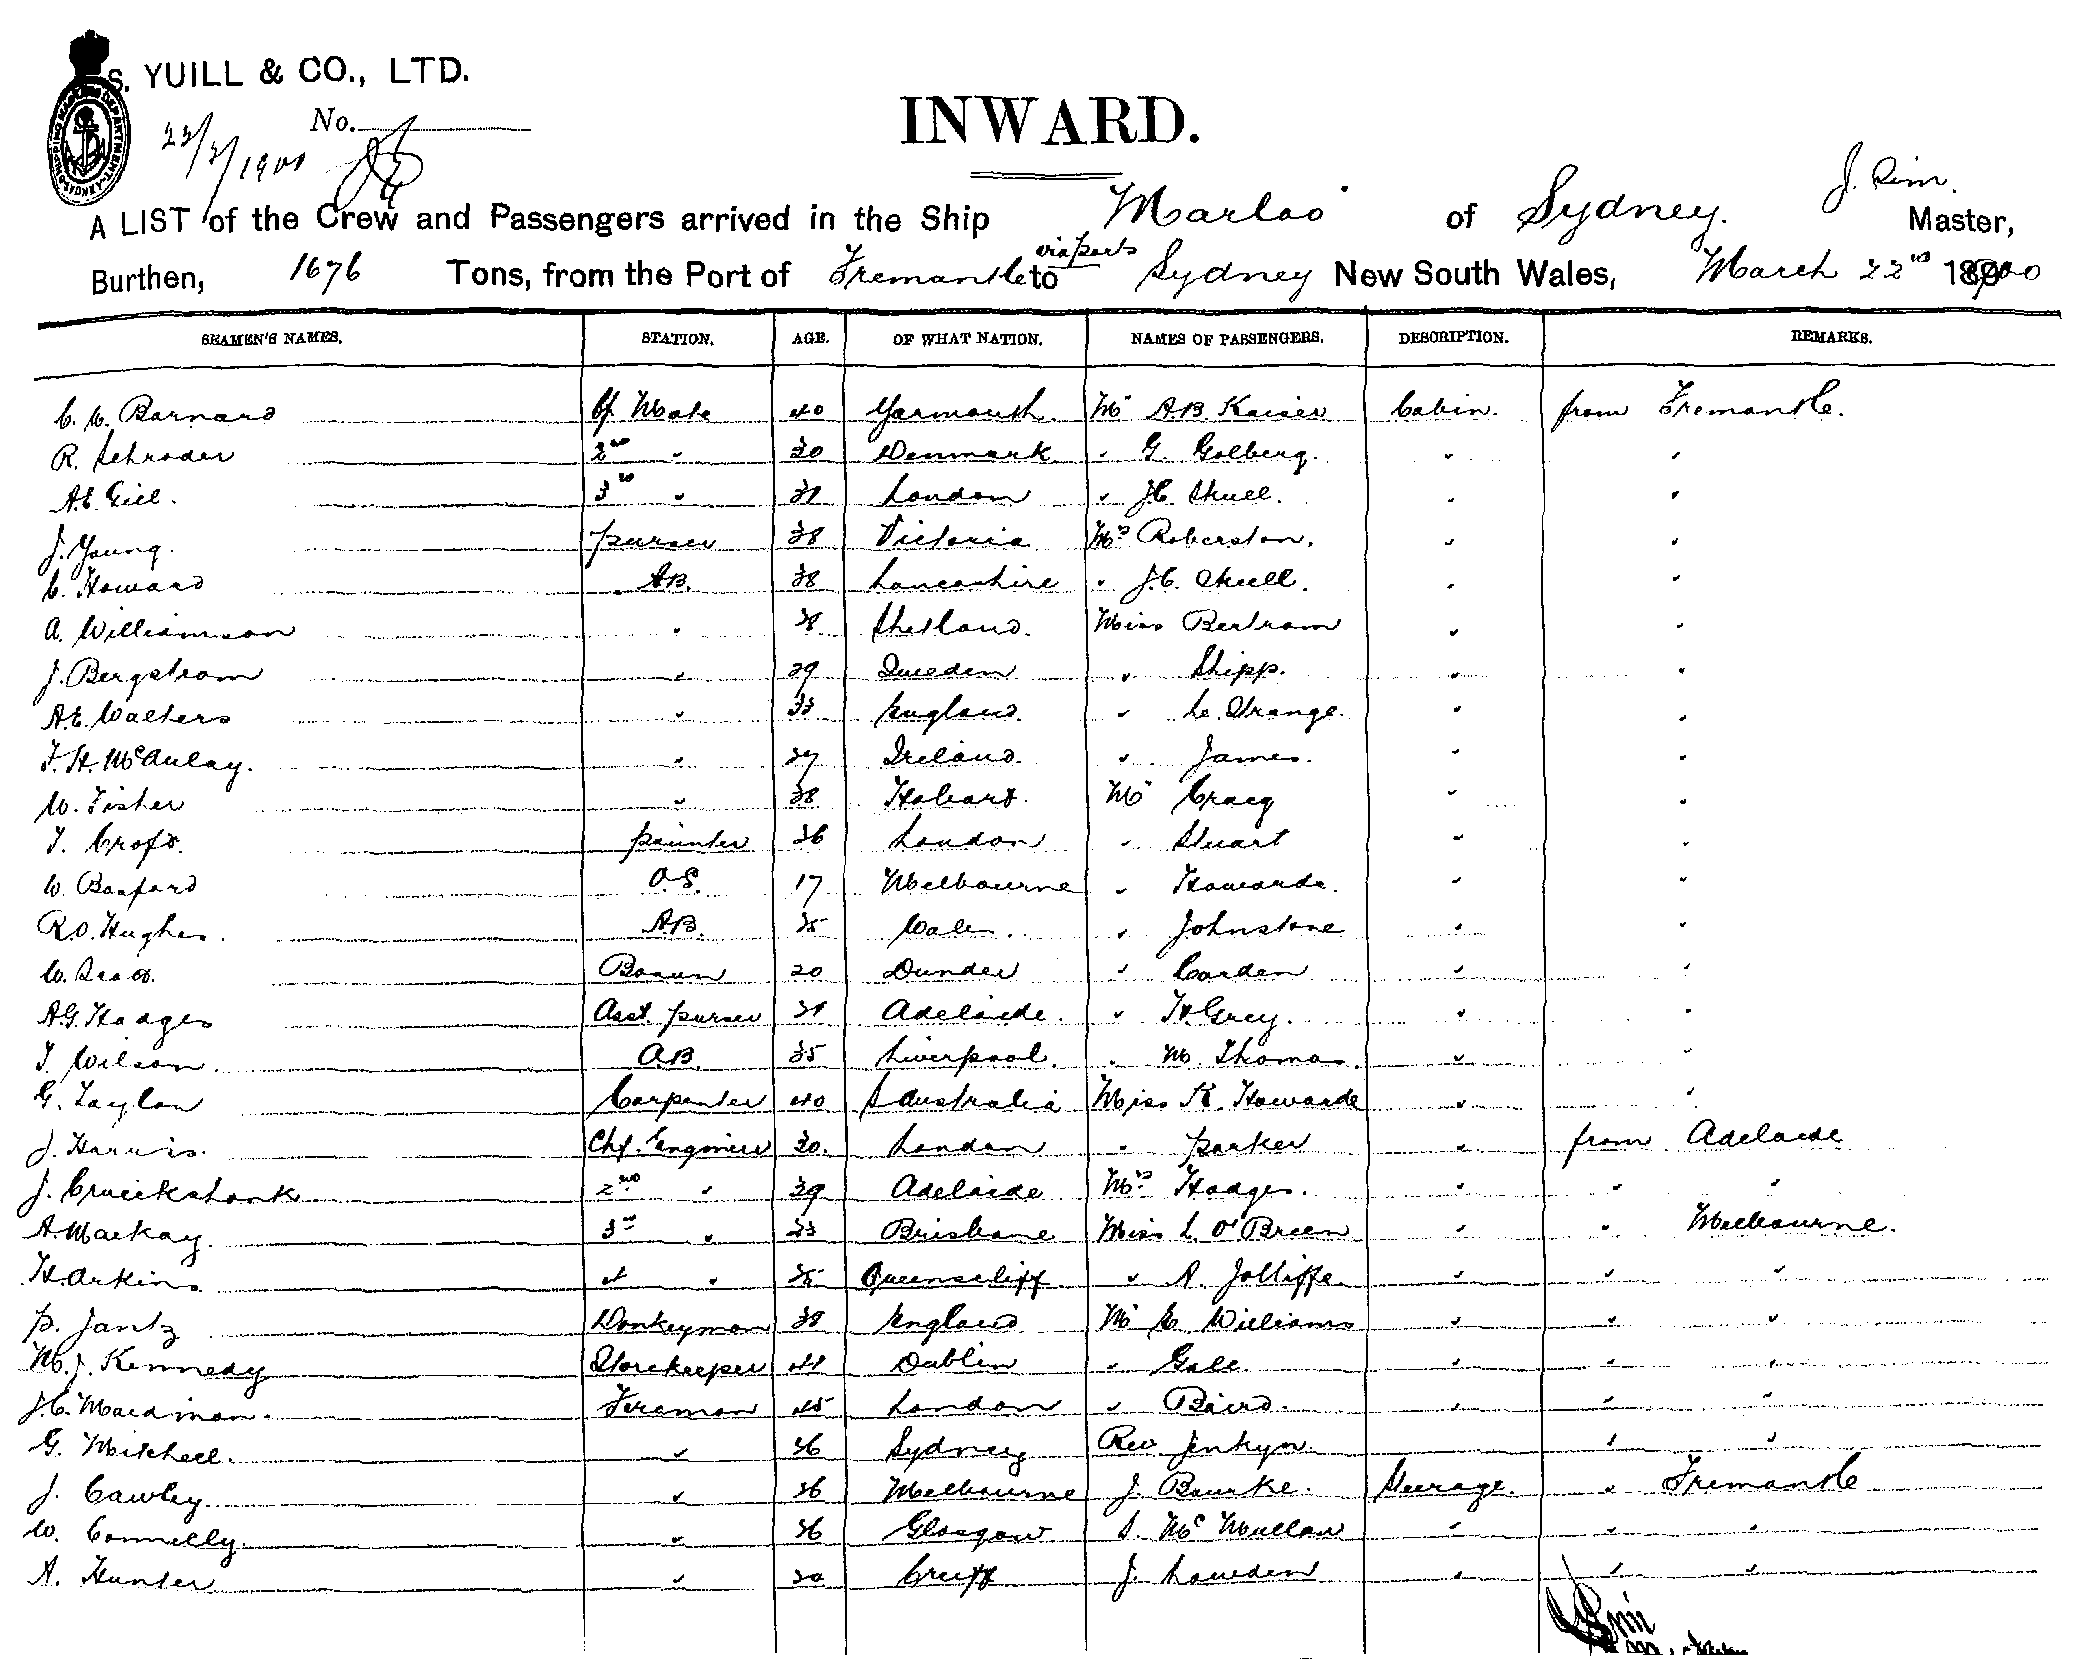 S. YUILL & CO., LTD.
No.
23/3/1900
INWARD.
J. Sim.
A LIST of the Crew and Passengers arrived in the Ship Marloo of Sydney. Master,
Burthen, 1676 Tons, from the Port of Fremantle via ports to Sydney New South Wales, March 22nd 1900
SEAMEN'S NAMES. STATION. AGE. OF WHAT NATION. NAMES OF PASSENGERS. DESCRIPTION. REMARKS.
C. W. Barnard Cf. Mate 40 Yarmouth. Mr A.B. Kaiser Cabin. from Fremantle.
R. Schroder 2nd " 30 Denmark " G. Golberg. " "
A.E. Gill. 3rd " 31 London " J.C. Skull. " "
J. Young. purser 38 Victoria Mrs Roberston. " "
C. Howard AB. 38 Lancashire " J.C. Skull. " "
A. Williamson " 38 Shetland. Miss Bertram " "
J. Bergstrom " 29 Sweden " Shipp. " "
A.E. Walters " 33 England. " Le. Strange. " "
F. H. McAulay. " 37 Ireland. " James. " "
W. Fisher " 38 Hobart. Mr Craeg " "
T. Croft. painter 36 London " Stuart " "
W. Basford O.S. 17 Melbourne " Howarde. " "
R.O. Hughes. AB. 35 Wales. " Johnstone " "
W. Scott. Bosun 30 Dundee " Carden " "
A.G. Hodges Asst. purser 31 Adelaide. " H. Grey. " "
T. Wilson. AB. 35 Liverpool. " M. Thomas. " "
G. Taylor Carpenter 40 S Australia Miss K. Howarde " "
J. Harris. Chf. Engineer 30. London " parker " from Adelaide
J. Cruickshank 2nd " 39 Adelaide Mrs Hodges. " " "
A. Mackay. 3rd " 33 Brisbane Miss L. O'Brien " " Melbourne.
H. Arkins. 4 " 35 Queenscliff " A. Jolliffe. " " "
P. Jantz Donkeyman 38 England Mr E. Williams " " "
M. J. Kennedy Storekeeper 41 Dublin " Gale " " "
J.C. Maidman. Fireman 45 London " Baird. " " "
G. Mitchell. " 36 Sydney Rev Jenkyn. " "
J. Cawley. " 36 Melbourne J. Bourke. Steerage. " Fremantle
W. Connelly. " 36 Glasgow S. McMullan " " "
A. Hunter " 30 Crieff J. Lowden " " "